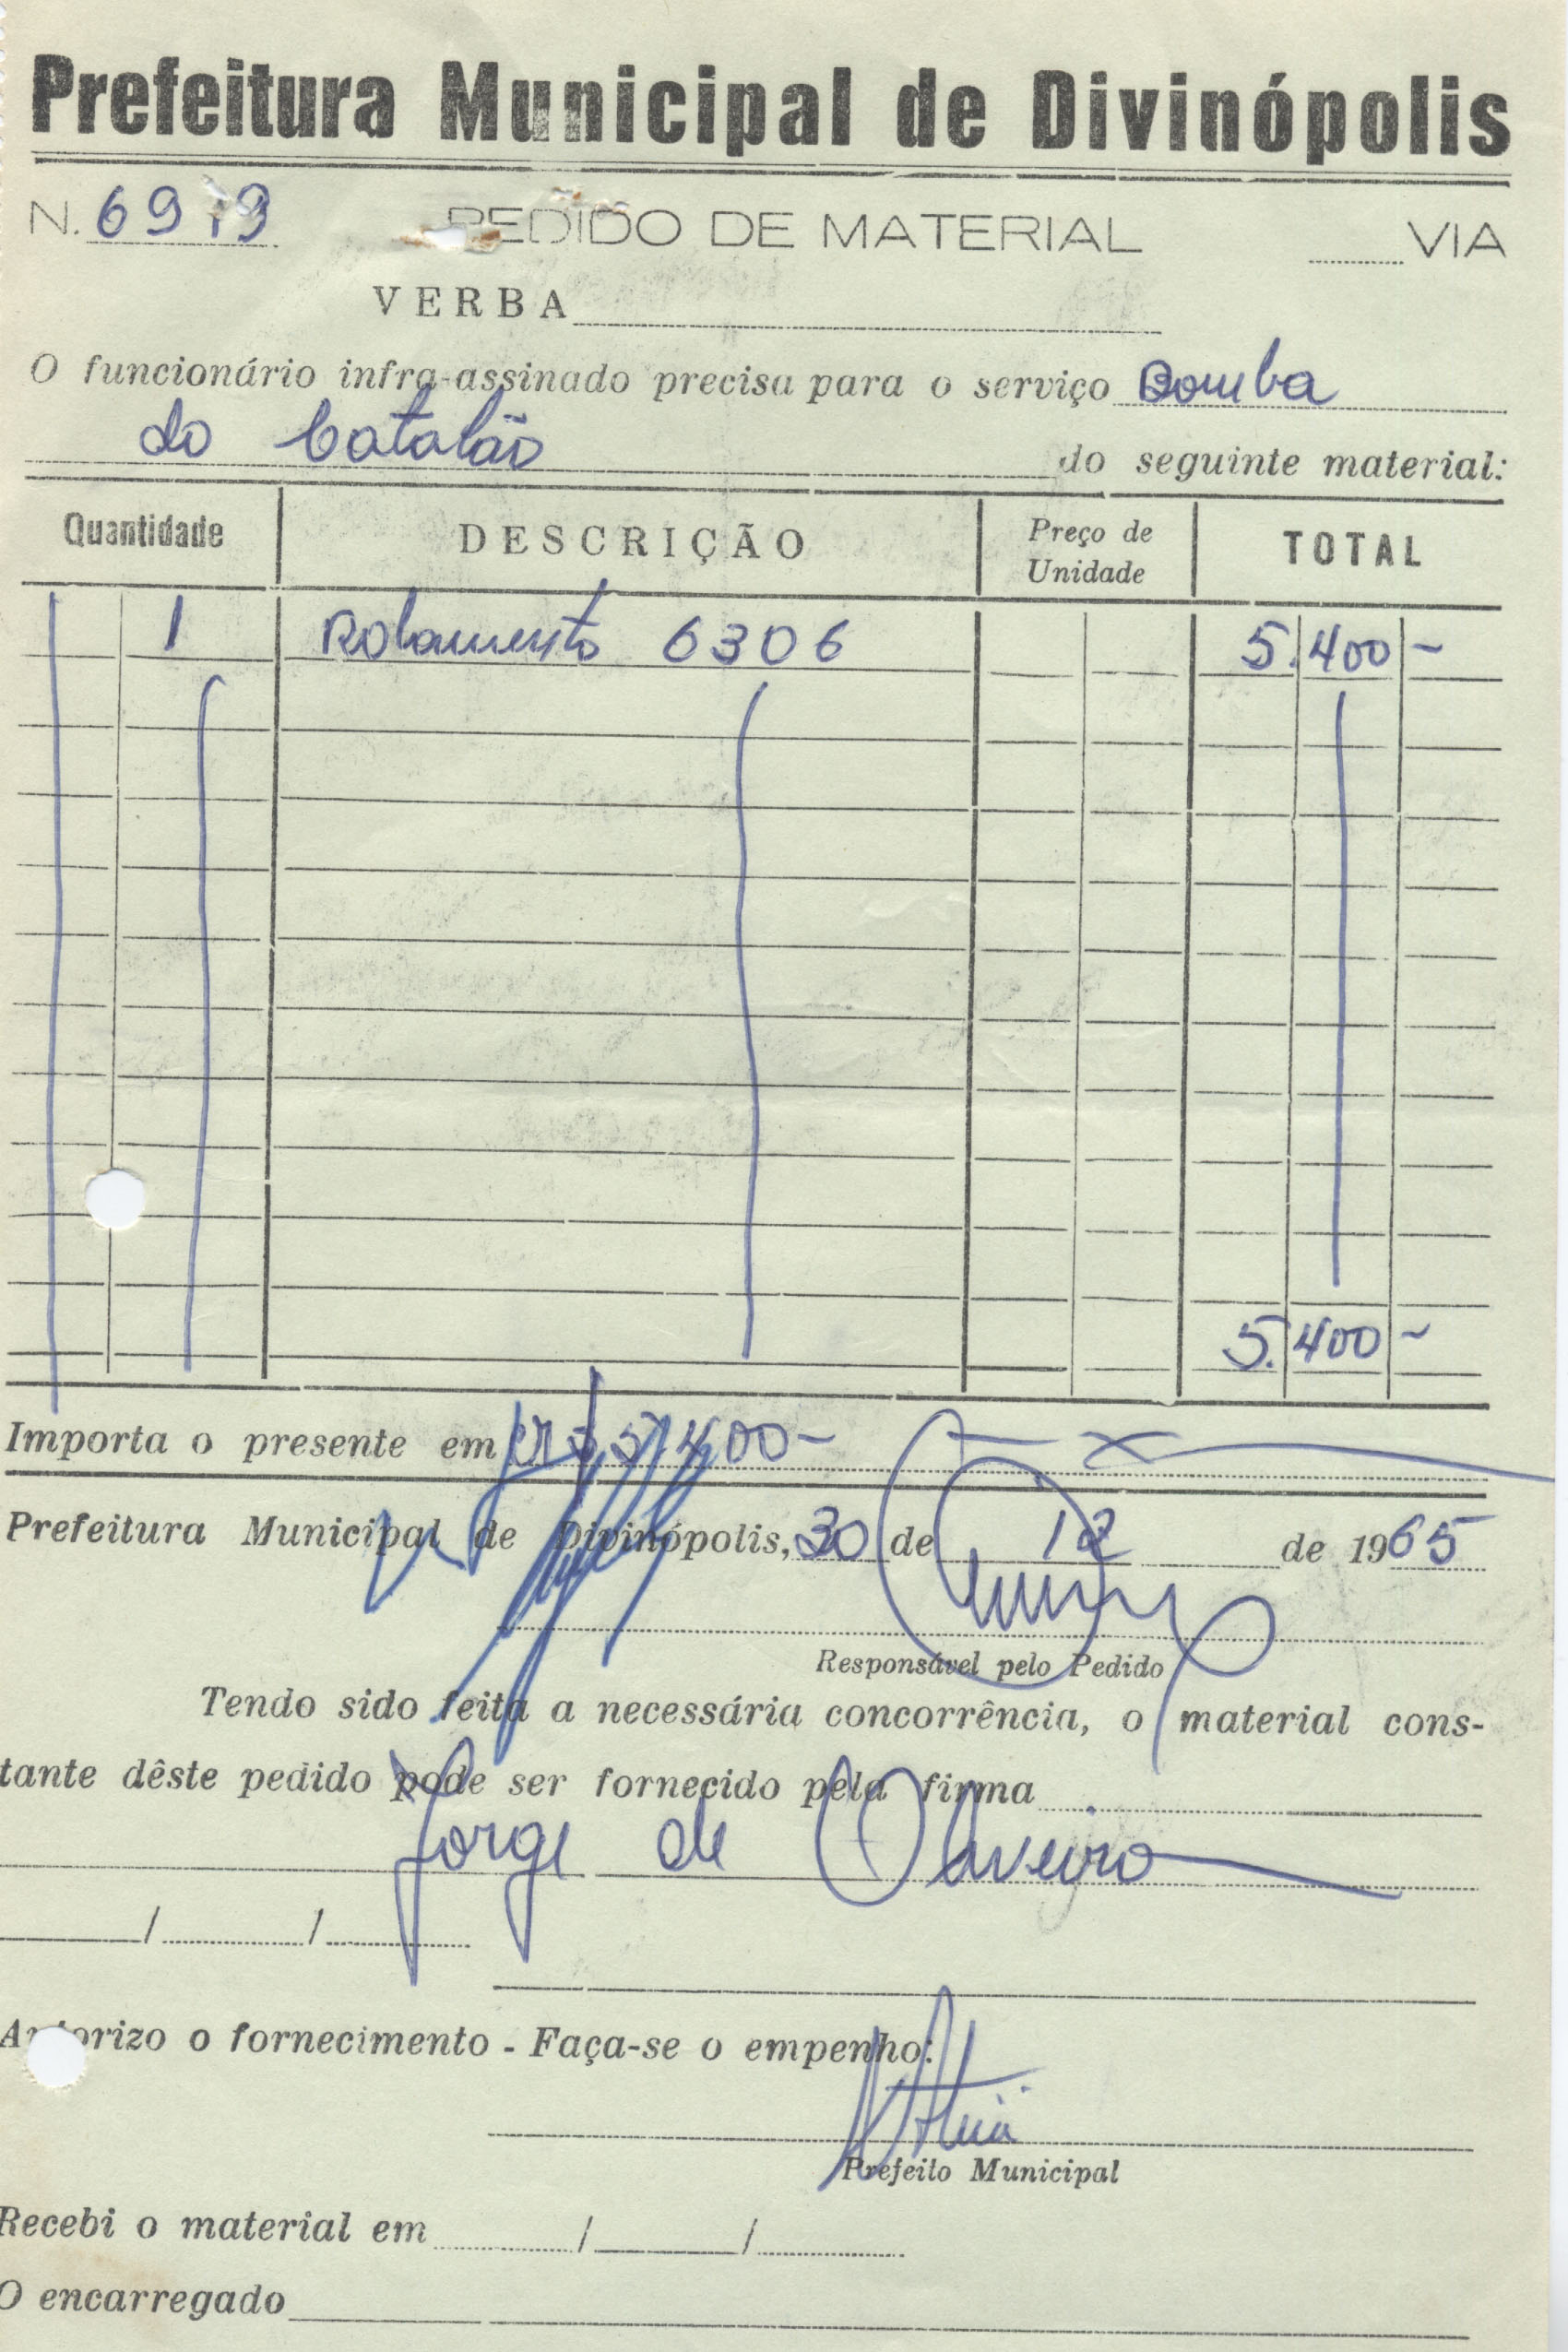 Prefeitura Municipal de Divinópolis
N. PEDIDO DE MATERIAL VIA
VERBA
O funcionário infra-assinado precisa para o serviço Bomba
do Catalão do seguinte material:
Quantidade DESCRIÇÃO Preço de Unidade TOTAL
1 Rolamento 6306 5.400 -
5.400 -
Importa o presente em Cr$ 5.400 -
Prefeitura Municipal de Divinópolis, 30 de 12 de 1965
Responsável pelo Pedido
Tendo sido feita a necessária concorrência, o material cons-
tante dêste pedido pode ser fornecido pela firma
Jorge de Oliveira
/ /
Autorizo o fornecimento - Faça-se o empenho:
Prefeito Municipal
Recebi o material em / /
O encarregado